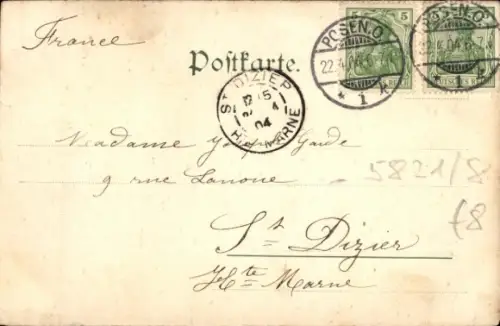 France
Postkarte.
POSEN.O.
22.4.04
* 1
5
POSEN.O.
4.04
* 1
ST DIZIER
12 15
4
04
MARNE
Madame Garde
9 rue Lanoue
St Dizier
Hte Marne
5821/8